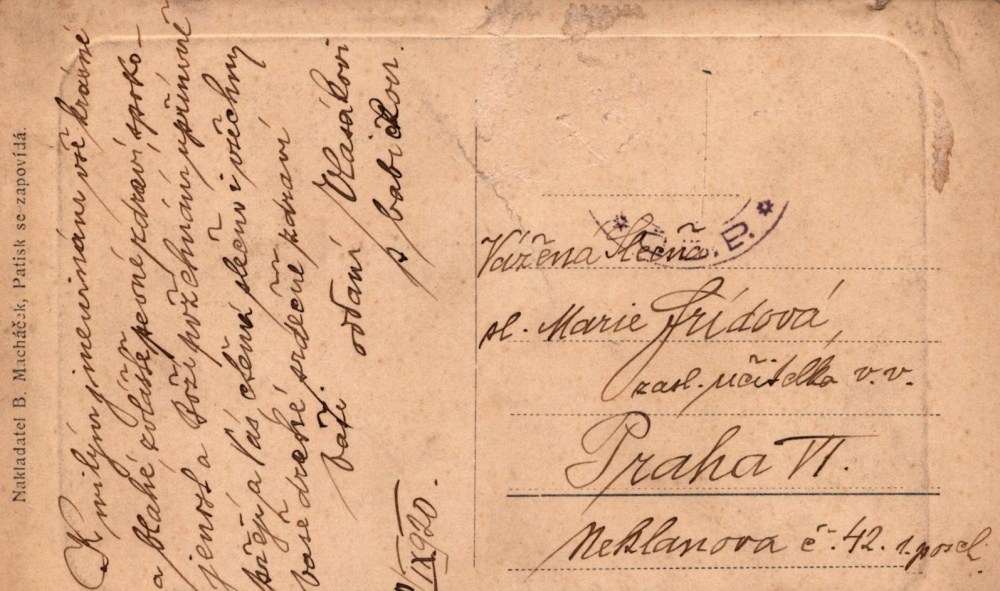 Nakladatel B. Macháček, Patisk se zapovídá.
K milým jmeninám vše krásné
a blahé zvláště pevné zdraví spoko-
jenost a Boží požehnání upřímně
přejí a Vás ctěná slečno i všechny
vaše drahé srdečně zdraví
Vaši oddaní Vlasákovi
s babičkou.
IX 920.
P.
Vážená Slečna.
sl. Marie Frídová,
zasl. učitelka v.v.
Praha VI.
Neklanova č. 42. 1. posch.